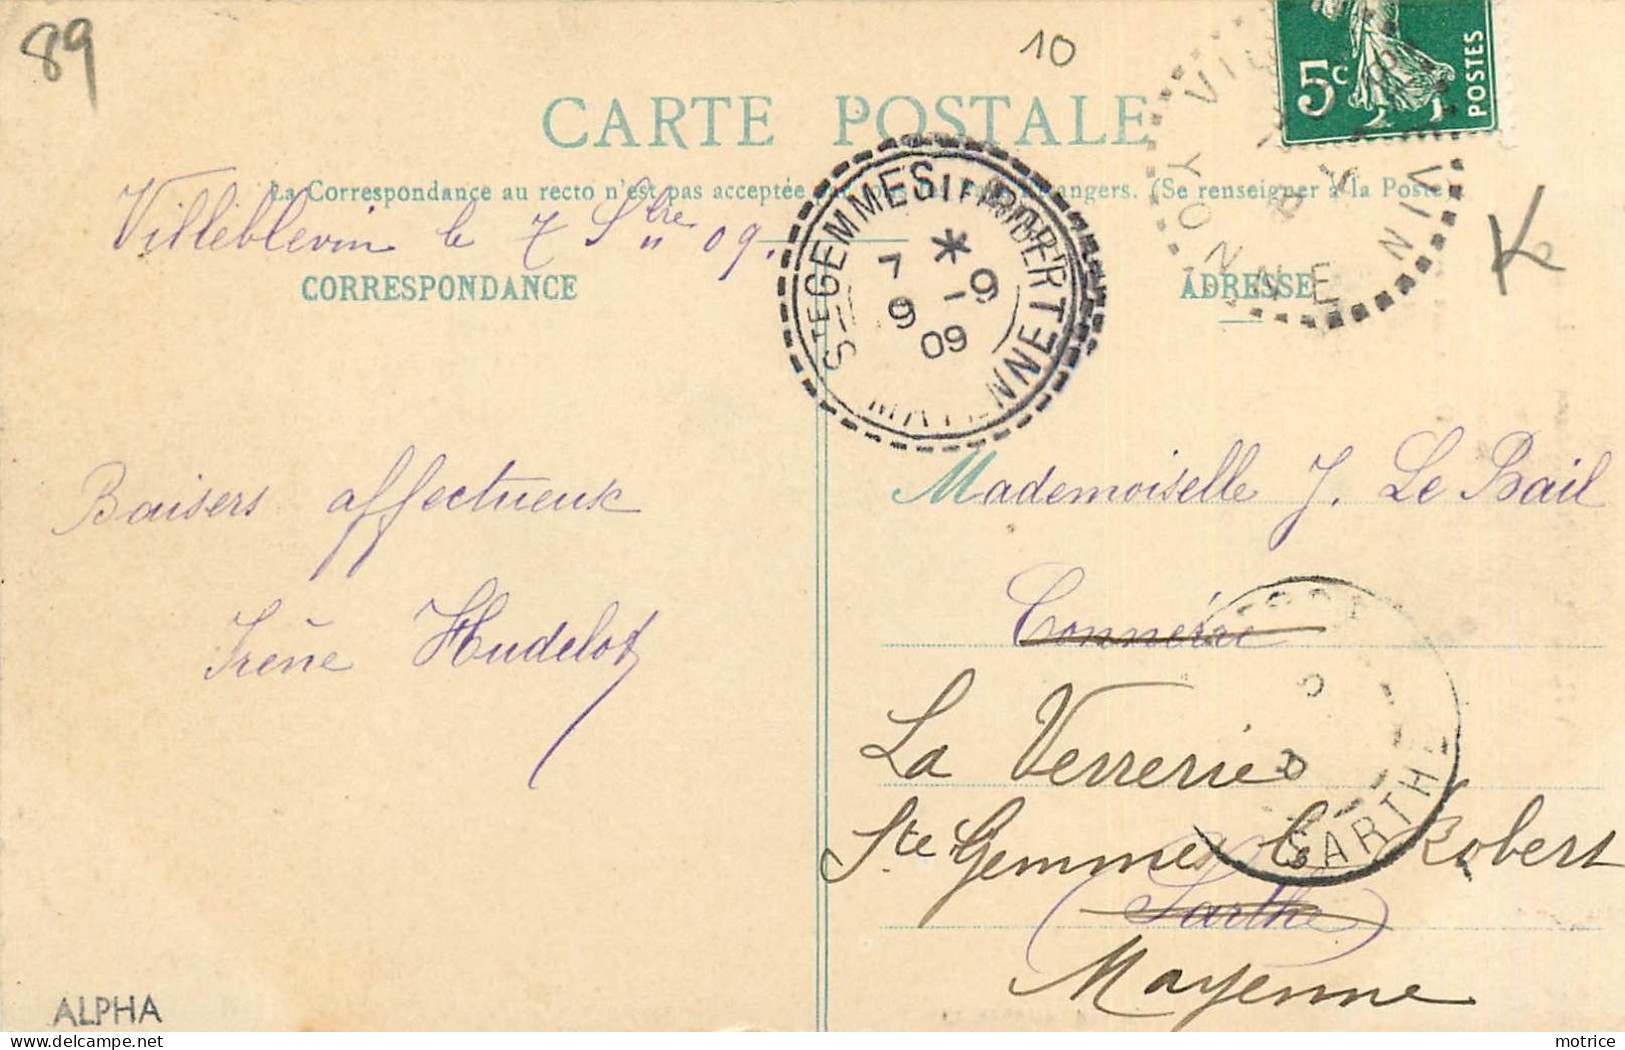 89
10
5c
POSTES
CARTE POSTALE
La Correspondance au recto n'est pas acceptée angers. (Se renseigner à la Poste)
Villeblevin le 7 Sbre 09.
CORRESPONDANCE
ADRESSE
STE GEMMES LE ROBERT
7 * 9
9
09
YONNE
K
Baisers affectueux
Mademoiselle J. Le Bail
Irène Hudelot
Connérré
La Verrerie
SARTHE
Ste Gemmes le Robert
(Sarthe)
Mayenne
ALPHA
motrice